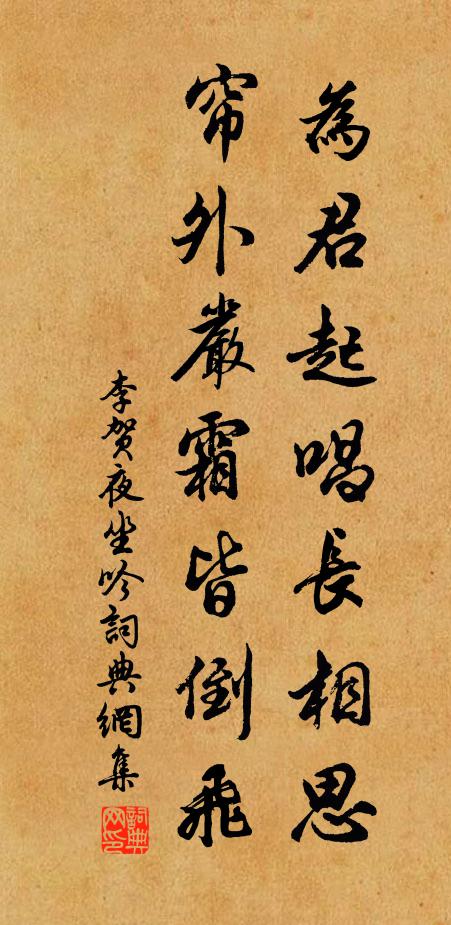 為君起唱長相思
帘外嚴霜皆倒飛
李贺夜坐吟詞典網集
詞典网印